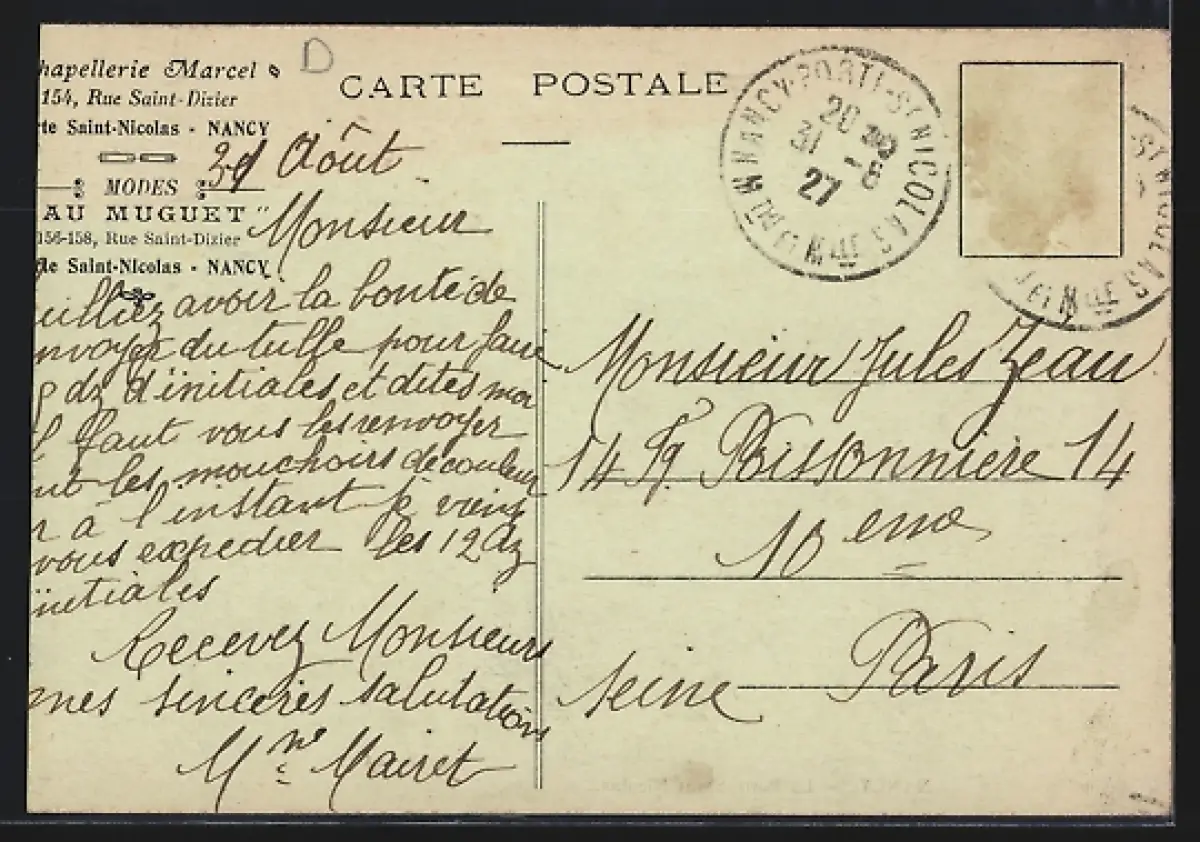 hapellerie Marcel
154, Rue Saint-Dizier
rte Saint-Nicolas - NANCY
MODES
AU MUGUET "
156-158, Rue Saint-Dizier
de Saint-Nicolas - NANCY
D
CARTE POSTALE
NANCY-PORTE-ST NICOLAS
20
31 - 8
27
Mthe ET Mlle
ST NICOLAS
ET Mlle
31 Août
Monsieur
uilliez avoir la bonté de
nvoyer du tulle pour faire
dz d'initiales et dites moi
il faut vous les renvoyer
nt les mouchoirs de couleur
r à l'instant je viens
vous expedier les 12 dz
initiales
Recevez Monsieur
mes sincères salutations
Mme Mairet
Monsieur Jules Jeau
14 Fg Poissonnière 14
10 eme
Paris
Seine